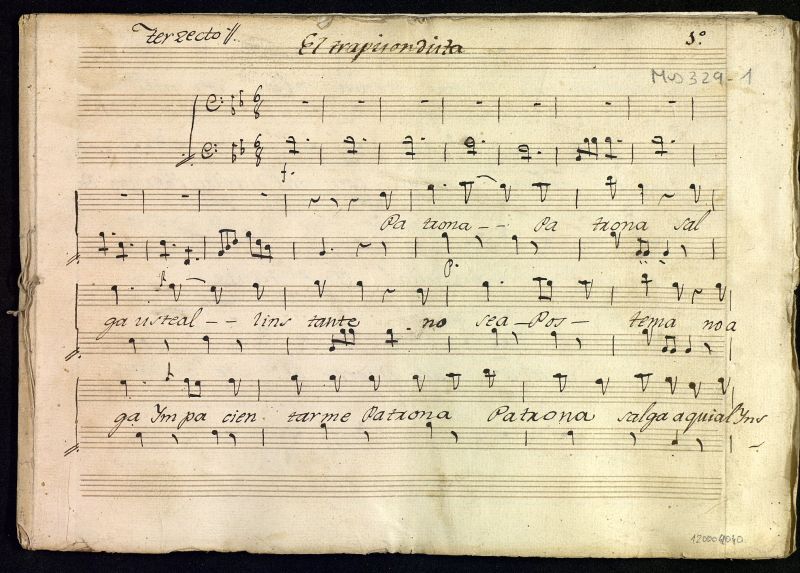 Terzecto //. El trapisondista 5º
Mus 329-1
f.
Pa trona - - Pa trona sal
p.
ga usteal - - lins tante no sea - Pos - tema no a
ga Ympa cien tarme Patrona Patrona salga aquial Yns